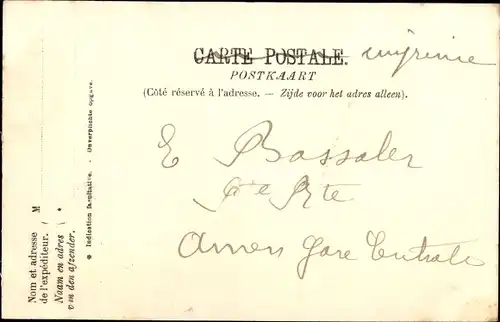 CARTE POSTALE. imprimé
POSTKAART
(Côté réservé à l'adresse. — Zijde voor het adres alleen).
E Bassaler
Pte Rte
Anvers Gare Centrale
Nom et adresse
de l'expéditeur.
Naam en adres
van den afzender.
M
*
* Indication facultative. - Onverplichte opgave.